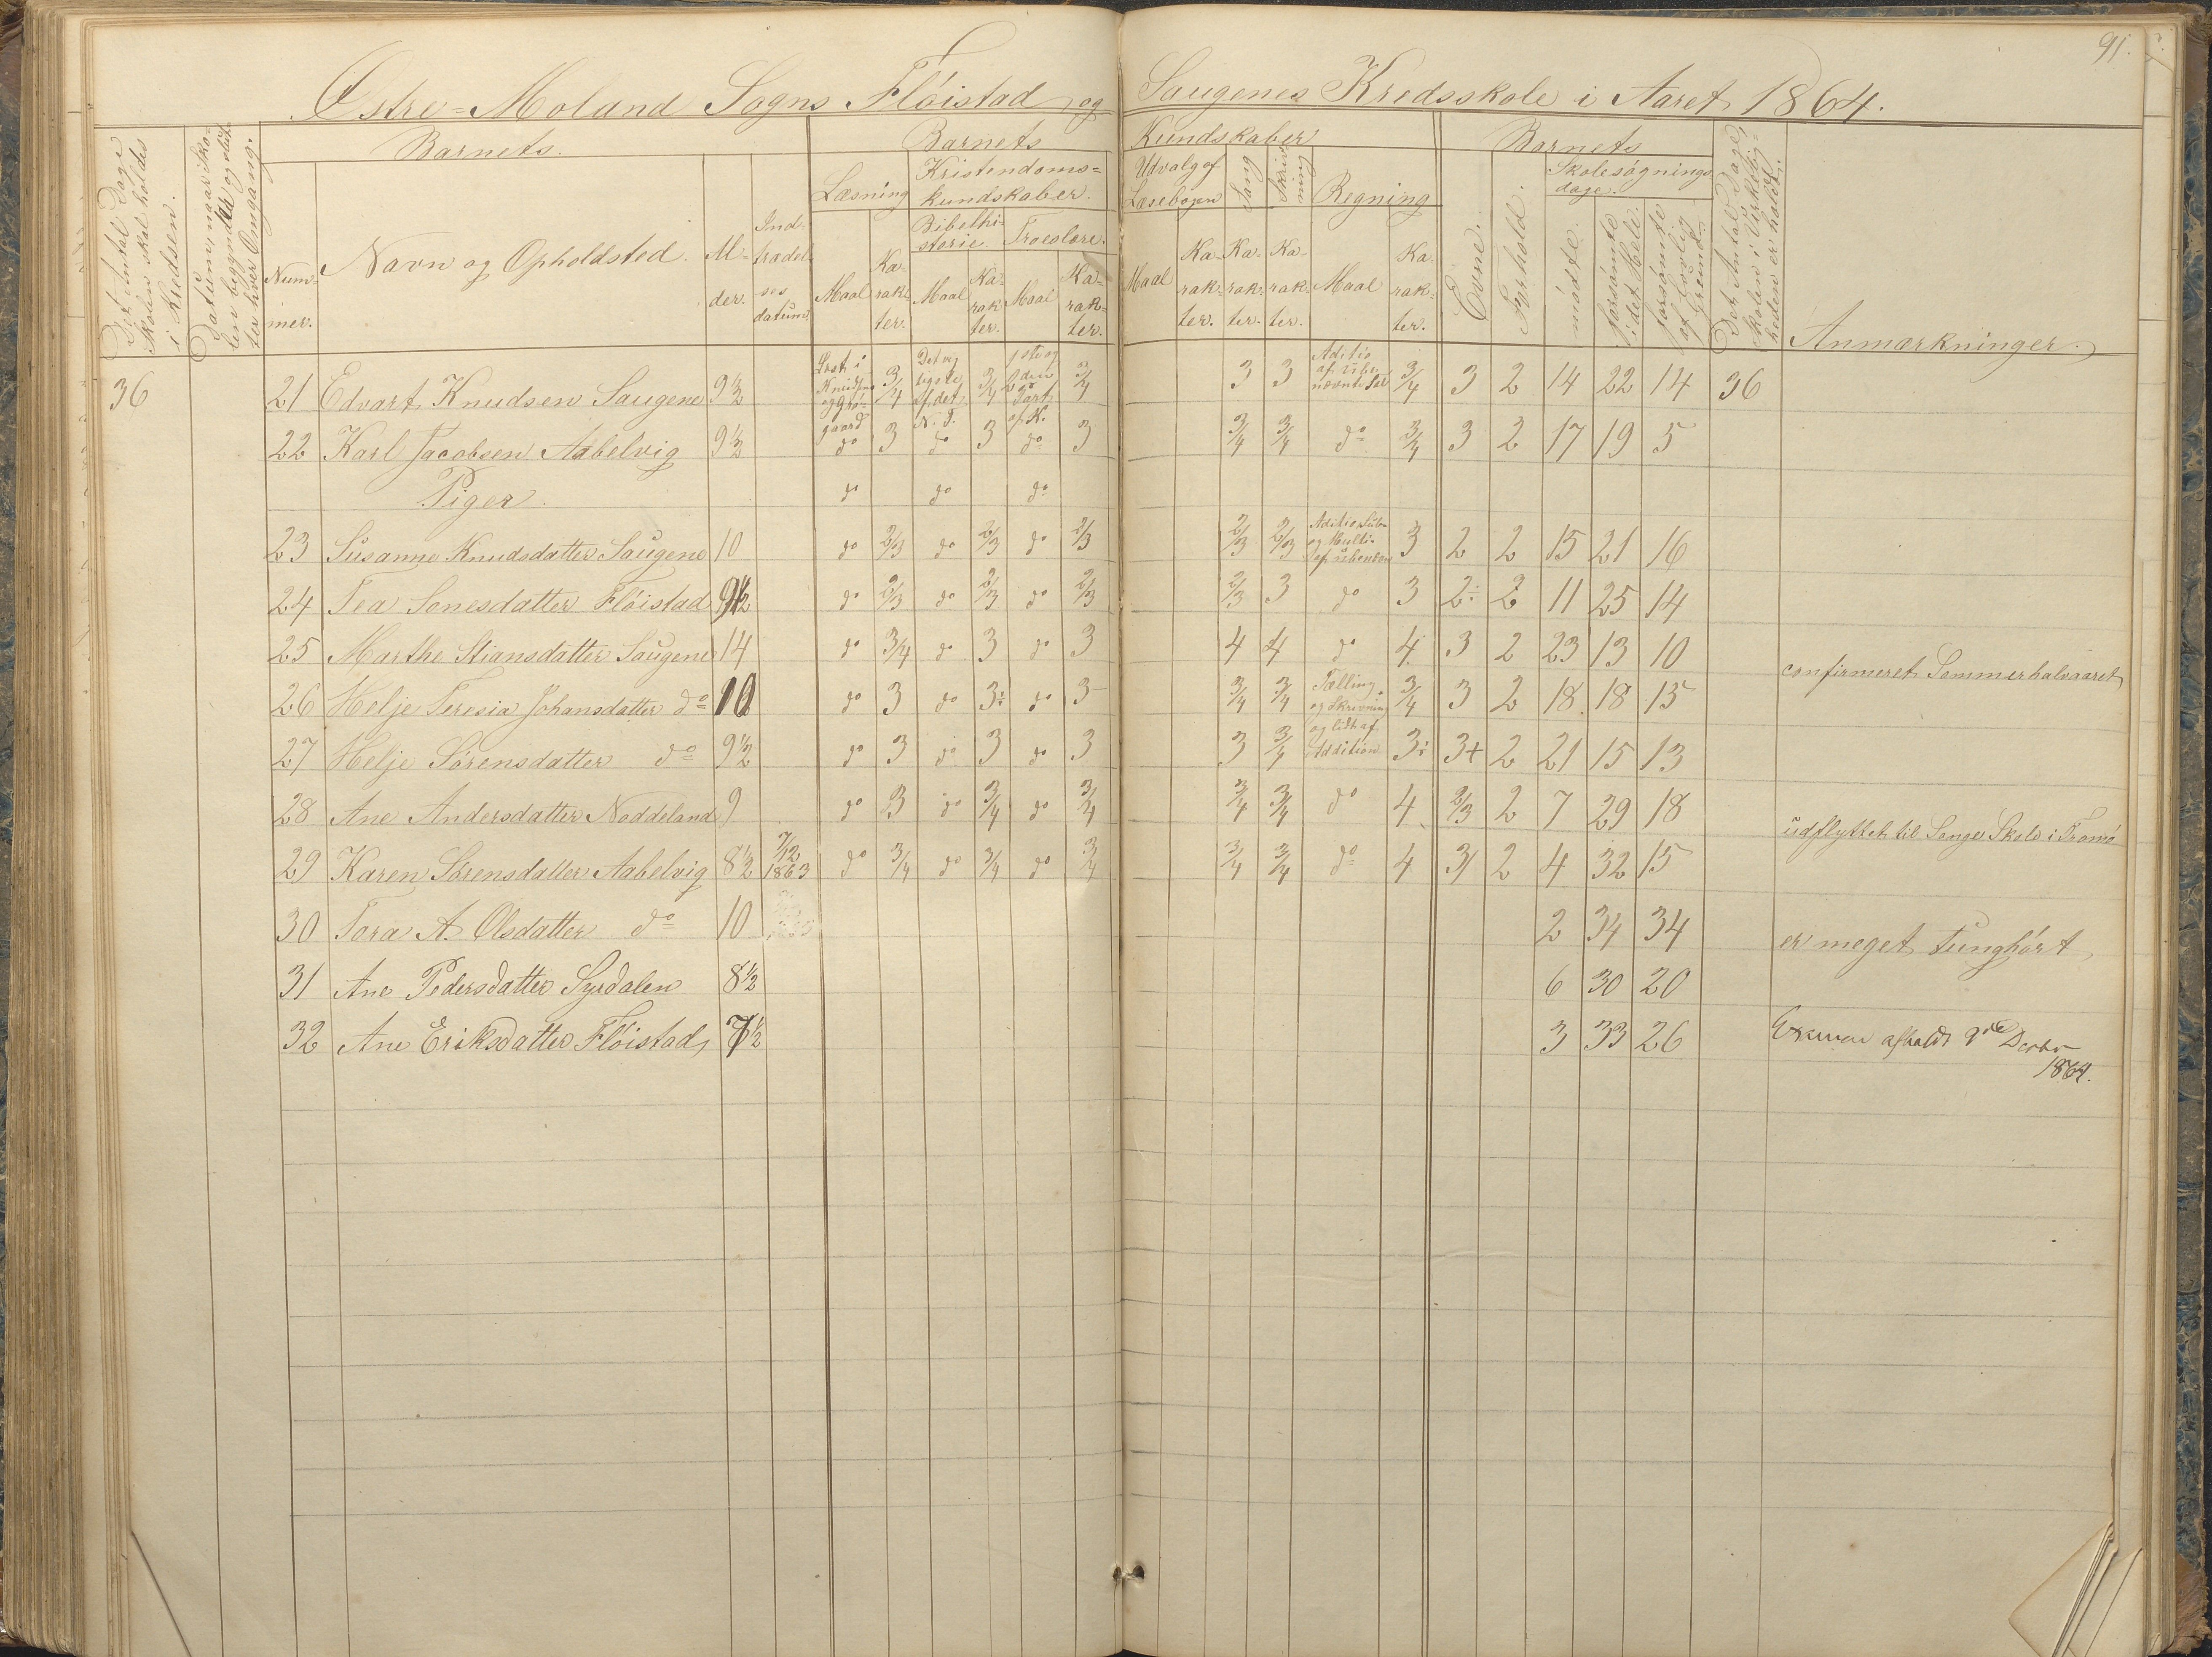 91.
Østre-Moland Sogns Fløistad og Saugenes Kredsskole i Aaret 1864.
Det Antal Dage Skolen skal holdes i Kredsen.
Datum, naar Skolen begynder og slutter hver Omgang.
Barnets
Nummer.
Navn og Opholdsted.
Alder.
Indtrædelsesdatum
Barnets Kundskaber
Læsning
Maal
Karakter.
Kristendomskundskaber.
Bibelhistorie
Maal
Karakter.
Troeslære.
Maal
Karakter.
Udvalg af Læsebogen
Maal
Karakter.
Sang
Karakter.
Skrivning
Karakter.
Regning
Maal
Karakter.
Barnets
Evne.
Forhold.
Skolesøgningsdage.
mødte
forsømte i det Hele
forsømte af lovlig Grund
Det Antal Dage, Skolen i Virkeligheden er holdt.
Anmærkninger.
36 21 Edvart Knudsen Saugene 9½ Læst i og Grøgaard 3/4 Det vigtigste af det N. T. 3/4 1ste og 2den Part af K. 3/4 3 3 Aditio af ube- nævnte Tal 3/4 3 2 14 22 14 36
22 Karl Jacobsen Aabelvig 9½ do 3 do 3 do 3 3/4 3/4 do 3/4 3 2 17 19 5
Piger do do do
23 Susanne Knudsdatter Saugene 10 do 2/3 do 2/3 do 2/3 2/3 2/3 Aditio Sub- og Multi- af ubenævn 3 2 2 15 21 16
24 Tea Sonesdatter Fløistad 9½ do 2/3 do 2/3 do 2/3 2/3 3 do 3 2÷ 2 11 25 14
25 Marthe Stiansdatter Saugene 14 do 3/4 do 3 do 3 4 4 do 4 3 2 23 13 10 confirmeret Sommerhalvaaret
26 Helje Teresia Johansdatter do 10 do 3 do 3÷ do 3 3/4 3/4 Tælling og Skrivning 3/4 3 2 18 18 15
27 Helje Sørensdatter do 9½ do 3 do 3 do 3 3 3/4 og lidt af Addition 3÷ 3+ 2 21 15 13
28 Ane Andersdatter Noddeland 9 do 3 do 3/4 do 3/4 3/4 3/4 do 4 2/3 2 7 29 18 udflyttet til Songe Skole i Tromø
29 Karen Sørensdatter Aabelvig 8½ 7/12 1863 do 3/4 do 3/4 do 3/4 3/4 3/4 do 4 3/ 2 4 32 15
30 Tora A. Olsdatter do 10 2 34 34 er meget tunghørt
31 Ane Pedersdatter Syrdalen 8½ 6 30 20
32 Ane Eriksdatter Fløistad 7½ 3 33 26 Examen afholdt 9de Decbr 1864.